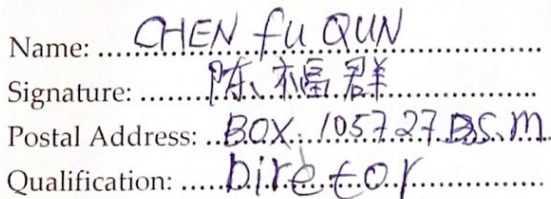 Name: CHEN fu QUN
Signature: 陈福群
Postal Address: BOX. 105727 DS.M
Qualification: Director